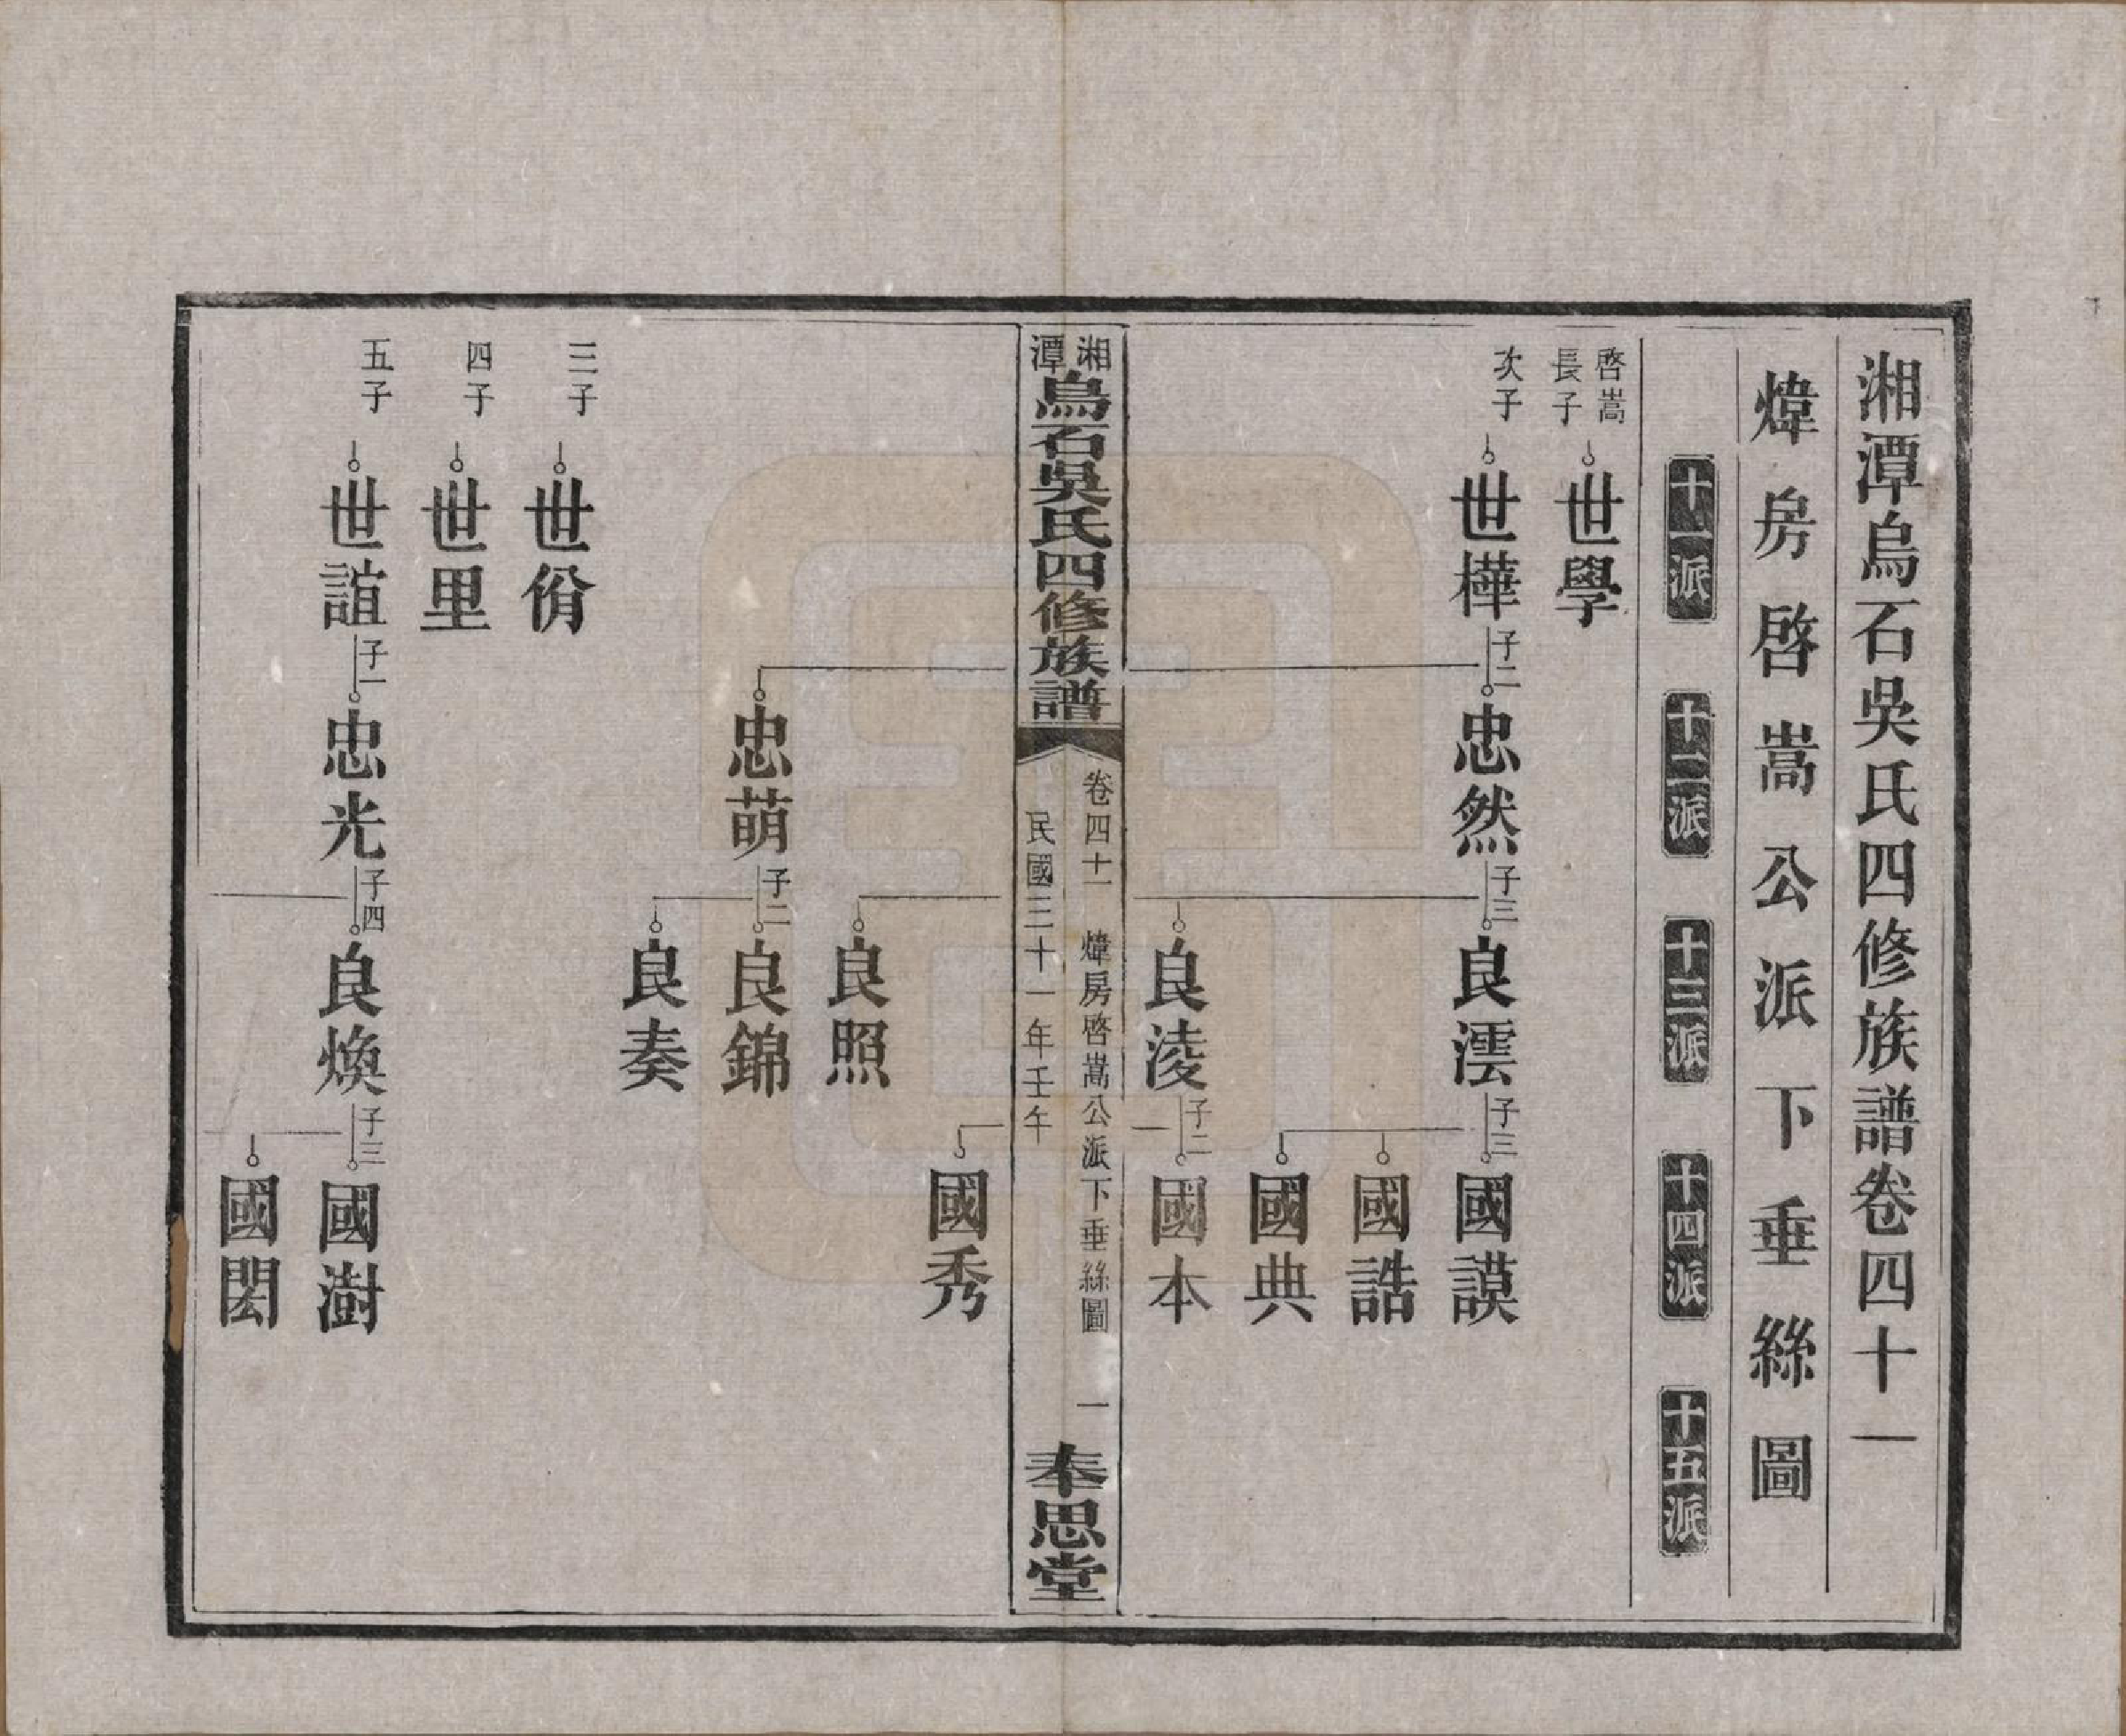 湘潭烏石吳氏四修族譜卷四十一
煒房啓嵩公派下垂絲圖
十一派
十二派
十三派
十四派
十五派
啓嵩
長子
世學
次子
世樺
子二
忠然
子三
良澐
子三
國謨
國誥
國典
良淩
子二
國本
湘潭
烏石吳氏四修族譜
卷四十一 煒房啓嵩公派下垂絲圖 一
民國三十一年壬午
奉思堂
國秀
良照
忠萌
子二
良錦
良奏
三子
世佾
四子
世里
五子
世誼
子一
忠光
子四
良煥
子三
國澍
國閎